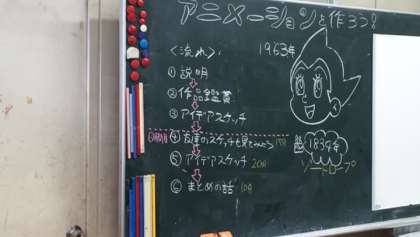 アニメーションを作ろう!
<流れ>
1963年
① 説明
② 作品鑑賞
③ アイデアスケッチ
④ 友達のスケッチを見てみよう 15分
⑤ アイデアスケッチ 20分
⑥ まとめの話 10分
1839年
ゾートロープ